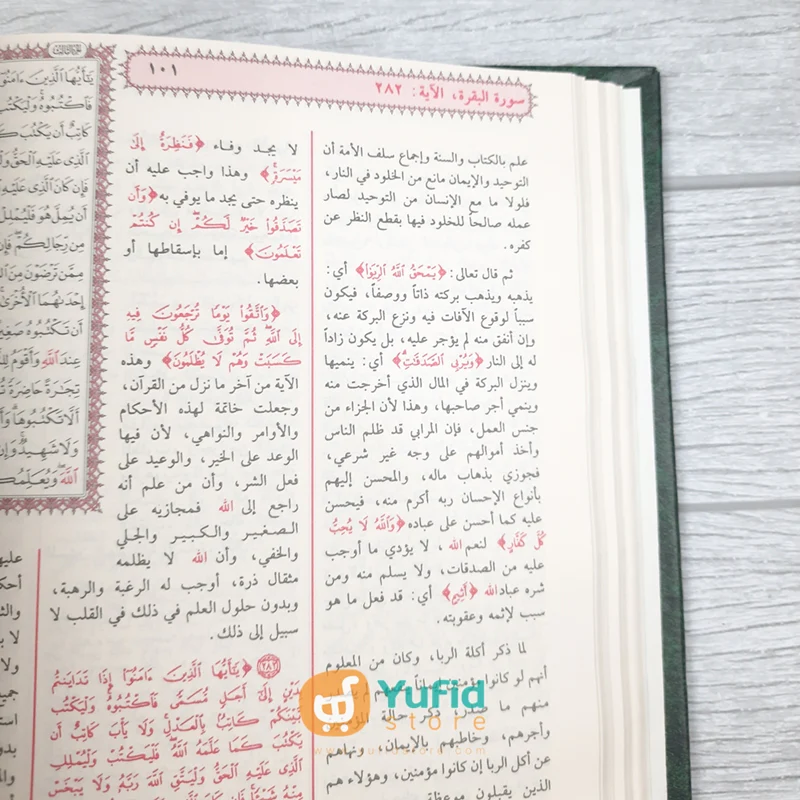 سورة البقرة، الآية: ٢٨٢
١٠١
علم بالكتاب والسنة وإجماع سلف الأمة أن
التوحيد والإيمان مانع من الخلود في النار،
فلولا ما مع الإنسان من التوحيد لصار
عمله صالحاً للخلود فيها بقطع النظر عن
كفره.
ثم قال تعالى: ﴿يَمْحَقُ اللَّهُ الرِّبَوٰا﴾ أي:
يذهبه ويذهب بركته ذاتاً ووصفاً، فيكون
سبباً لوقوع الآفات فيه ونزع البركة عنه،
وإن أنفق منه لم يؤجر عليه، بل يكون زاداً
له إلى النار ﴿وَيُرْبِى الصَّدَقَٰتِ﴾ أي: ينميها
وينزل البركة في المال الذي أخرجت منه
وينمي أجر صاحبها، وهذا لأن الجزاء من
جنس العمل، فإن المرابي قد ظلم الناس
وأخذ أموالهم على وجه غير شرعي،
فجوزي بذهاب ماله، والمحسن إليهم
بأنواع الإحسان ربه أكرم منه، فيحسن
عليه كما أحسن على عباده ﴿وَاللَّهُ لَا يُحِبُّ
كُلَّ كَفَّارٍ﴾ لنعم الله، لا يؤدي ما أوجب
عليه من الصدقات، ولا يسلم منه ومن
شره عباد الله ﴿أَثِيمٍ﴾ أي: قد فعل ما هو
سبب لإثمه وعقوبته.
لما ذكر أكلة الربا، وكان من المعلوم
أنهم لو كانوا مؤمنين
منهم ما صدر، ذكر حالة
وأجرهم، وخاطبهم بالإيمان، ونهاهم
عن أكل الربا إن كانوا مؤمنين، وهؤلاء هم
الذين يقبلون موعظة
لا يجد وفاء ﴿فَنَظِرَةٌ إِلَىٰ
مَيْسَرَةٍ﴾ وهذا واجب عليه أن
ينظره حتى يجد ما يوفي به ﴿وَأَن
تَصَدَّقُوا خَيْرٌ لَّكُمْ إِن كُنتُمْ
تَعْلَمُونَ﴾ إما بإسقاطها أو
بعضها.
﴿وَاتَّقُوا يَوْمًا تُرْجَعُونَ فِيهِ
إِلَى اللَّهِ ثُمَّ تُوَفَّىٰ كُلُّ نَفْسٍ مَّا
كَسَبَتْ وَهُمْ لَا يُظْلَمُونَ﴾ وهذه
الآية من آخر ما نزل من القرآن،
وجعلت خاتمة لهذه الأحكام
والأوامر والنواهي، لأن فيها
الوعد على الخير، والوعيد على
فعل الشر، وأن من علم أنه
راجع إلى الله فمجازيه على
الصغير والكبير والجلي
والخفي، وأن الله لا يظلمه
مثقال ذرة، أوجب له الرغبة والرهبة،
وبدون حلول العلم في ذلك في القلب لا
سبيل إلى ذلك.
﴿٢٨٢﴾ ﴿يَٰٓأَيُّهَا الَّذِينَ ءَامَنُوٓا إِذَا تَدَايَنتُم
بِدَيْنٍ إِلَىٰٓ أَجَلٍ مُّسَمًّى فَاكْتُبُوهُ وَلْيَكْتُب
بَّيْنَكُمْ كَاتِبٌ بِالْعَدْلِ وَلَا يَأْبَ كَاتِبٌ أَن
يَكْتُبَ كَمَا عَلَّمَهُ اللَّهُ فَلْيَكْتُبْ وَلْيُمْلِلِ
الَّذِى عَلَيْهِ الْحَقُّ وَلْيَتَّقِ اللَّهَ رَبَّهُ وَلَا يَبْخَسْ
مِنْهُ شَيْـًٔا فَإِن كَانَ الَّذِى
يَٰٓأَيُّهَا الَّذِينَ ءَامَنُوٓا
فَاكْتُبُوهُ وَلْيَكْتُب
كَاتِبٌ أَن يَكْتُبَ
الَّذِى عَلَيْهِ الْحَقُّ
فَإِن كَانَ الَّذِى عَلَيْهِ
أَن يُمِلَّ هُوَ فَلْيُمْلِلْ
مِن رِّجَالِكُمْ فَإِن
مِمَّن تَرْضَوْنَ مِنَ
إِحْدَىٰهُمَا الْأُخْرَىٰ
أَن تَكْتُبُوهُ صَغِيرًا
عِندَ اللَّهِ وَأَقْوَمُ
تِجَٰرَةً حَاضِرَةً
أَلَّا تَكْتُبُوهَا
وَلَا شَهِيدٌ وَإِن
اللَّهَ وَيُعَلِّمُكُمُ
YuFid
store
www.yufidstore.com